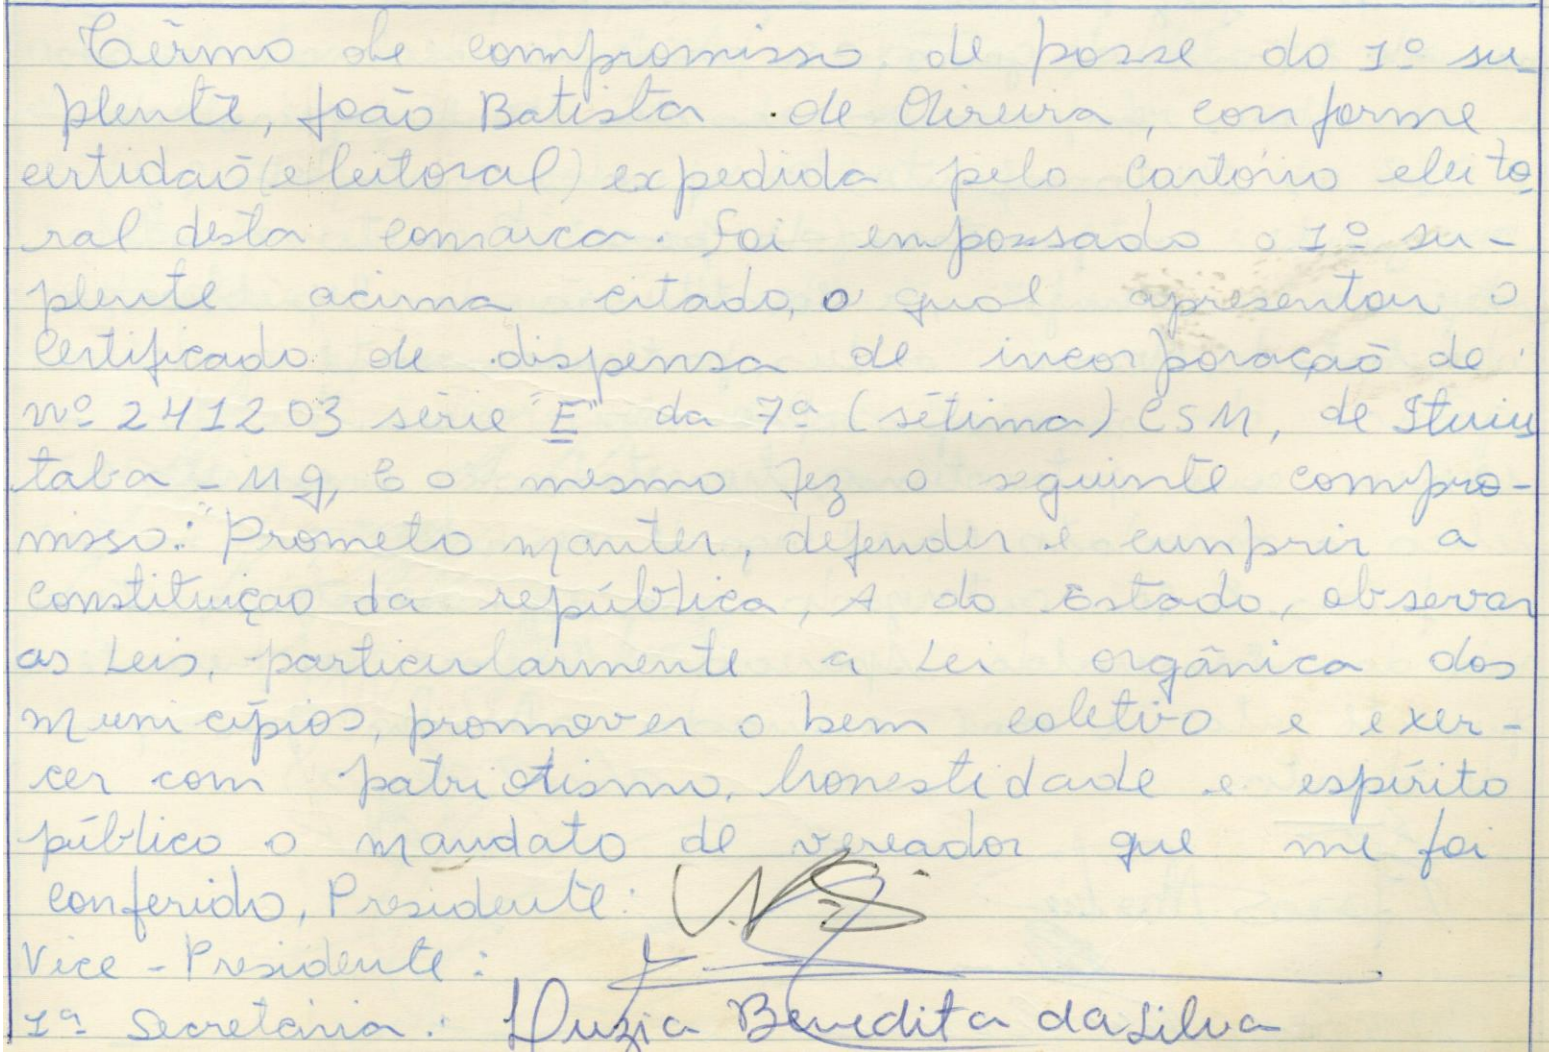 Têrmo de compromisso de posse do 1º su-
plente, João Batista de Oliveira, conforme
certidão (eleitoral) expedida pelo Cartório eleito
ral desta comarca. Foi empossado o 1º su-
plente acima citado, o qual apresentou o
Certificado de dispensa de incorporação de
nº 241203 série "E" da 7ª (sétima) CSM, de Ituiu
taba - Mg, E o mesmo fez o seguinte compro-
misso: "Prometo manter, defender e cumprir a
constituição da república, A do Estado, observar
as Leis, particularmente a Lei orgânica dos
municípios, promover o bem coletivo e exer-
cer com patriotismo, honestidade e espírito
público o mandato de vereador que me foi
conferido, Presidente:
Vice - Presidente:
1ª Secretária: Luzia Benedita da Silva